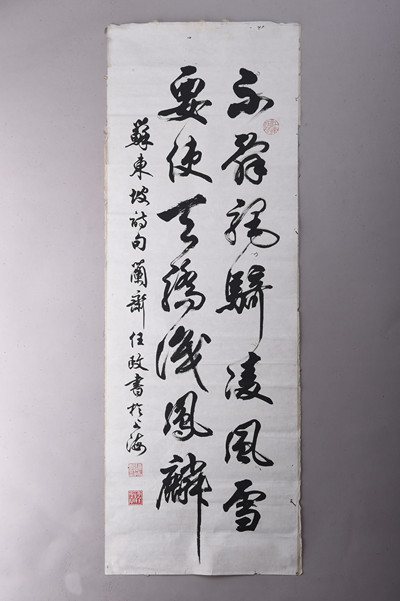 不辞驲骑凌風雪
要使天驕識鳳麟
蘇東坡詩句蘭齋任政書於上海